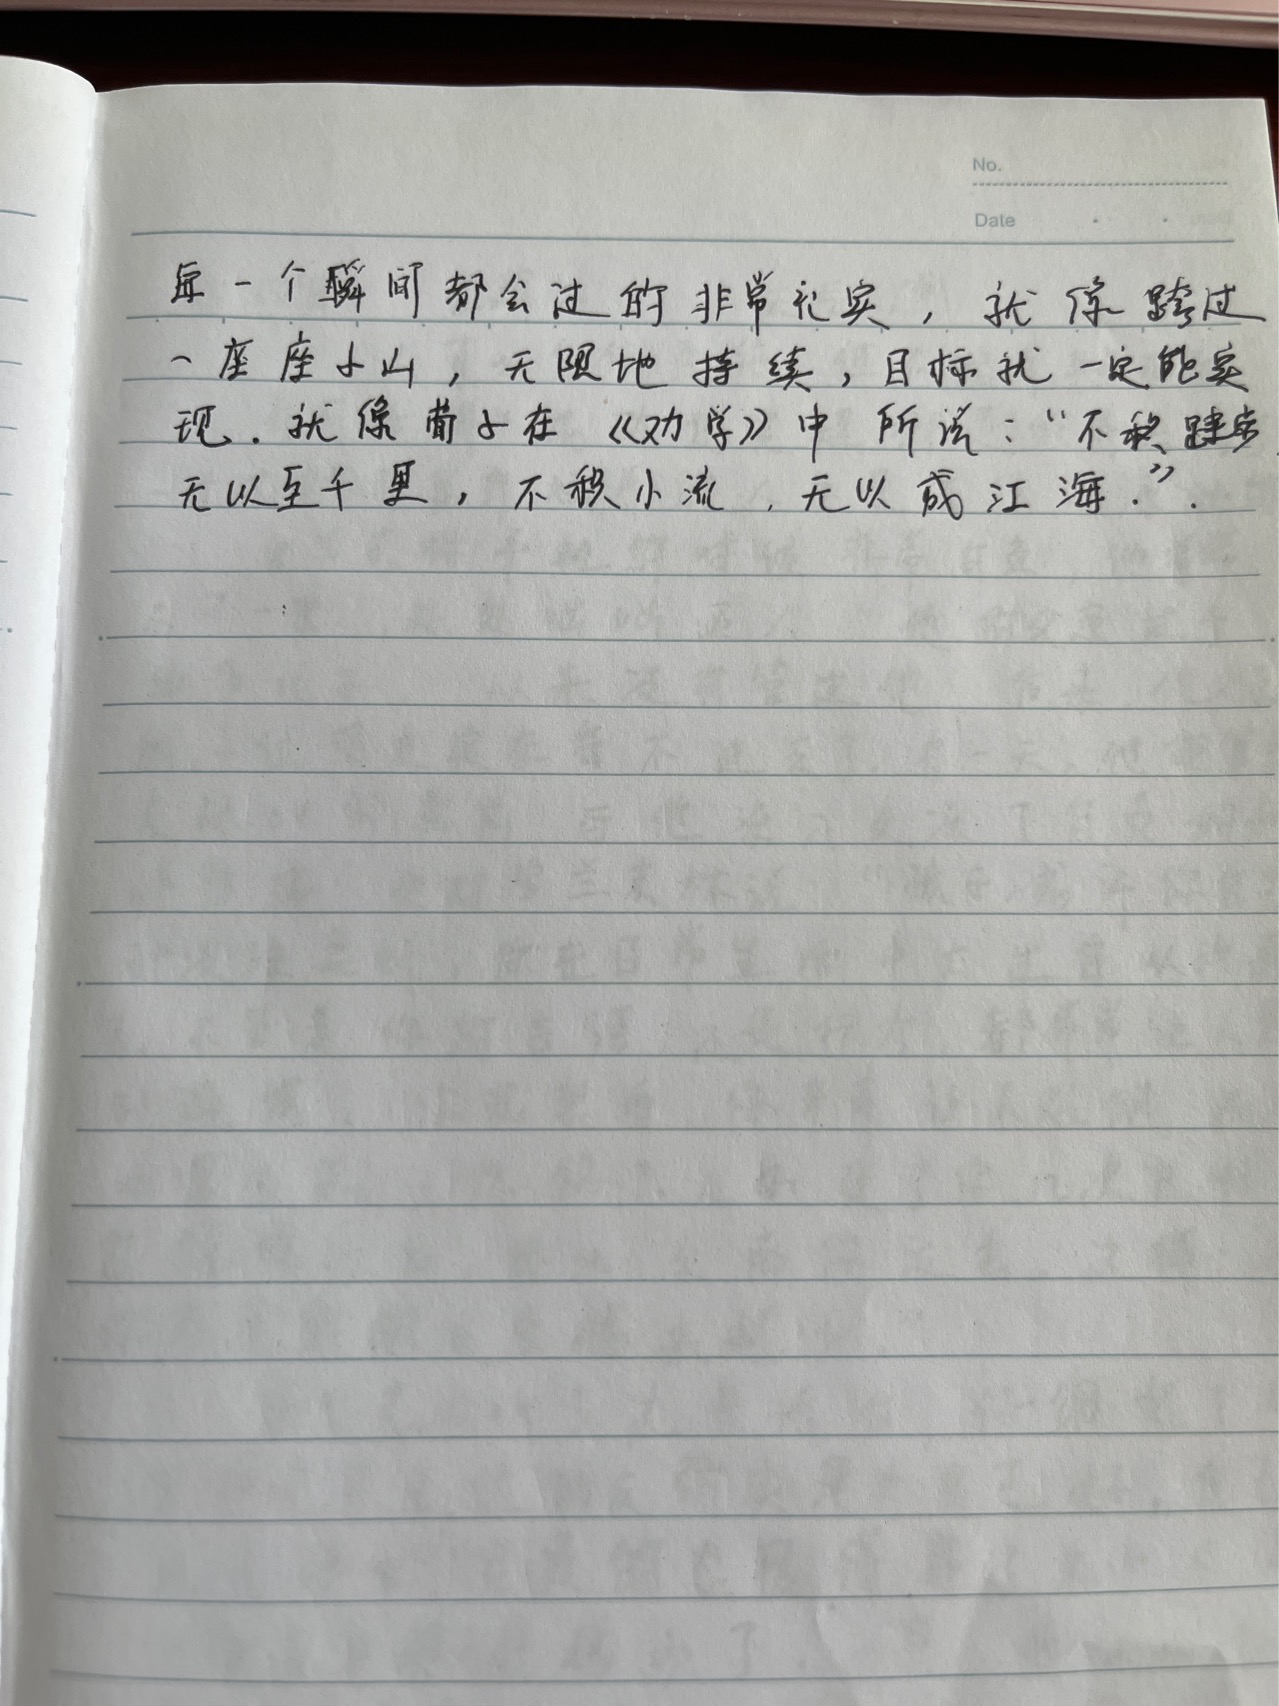 No.
Date
每一个瞬间都会过的非常扎实，就像跨过
一座座小山，无限地持续，目标就一定能实
现．就像荀子在《劝学》中所说："不积跬步
无以至千里，不积小流．无以成江海．"．